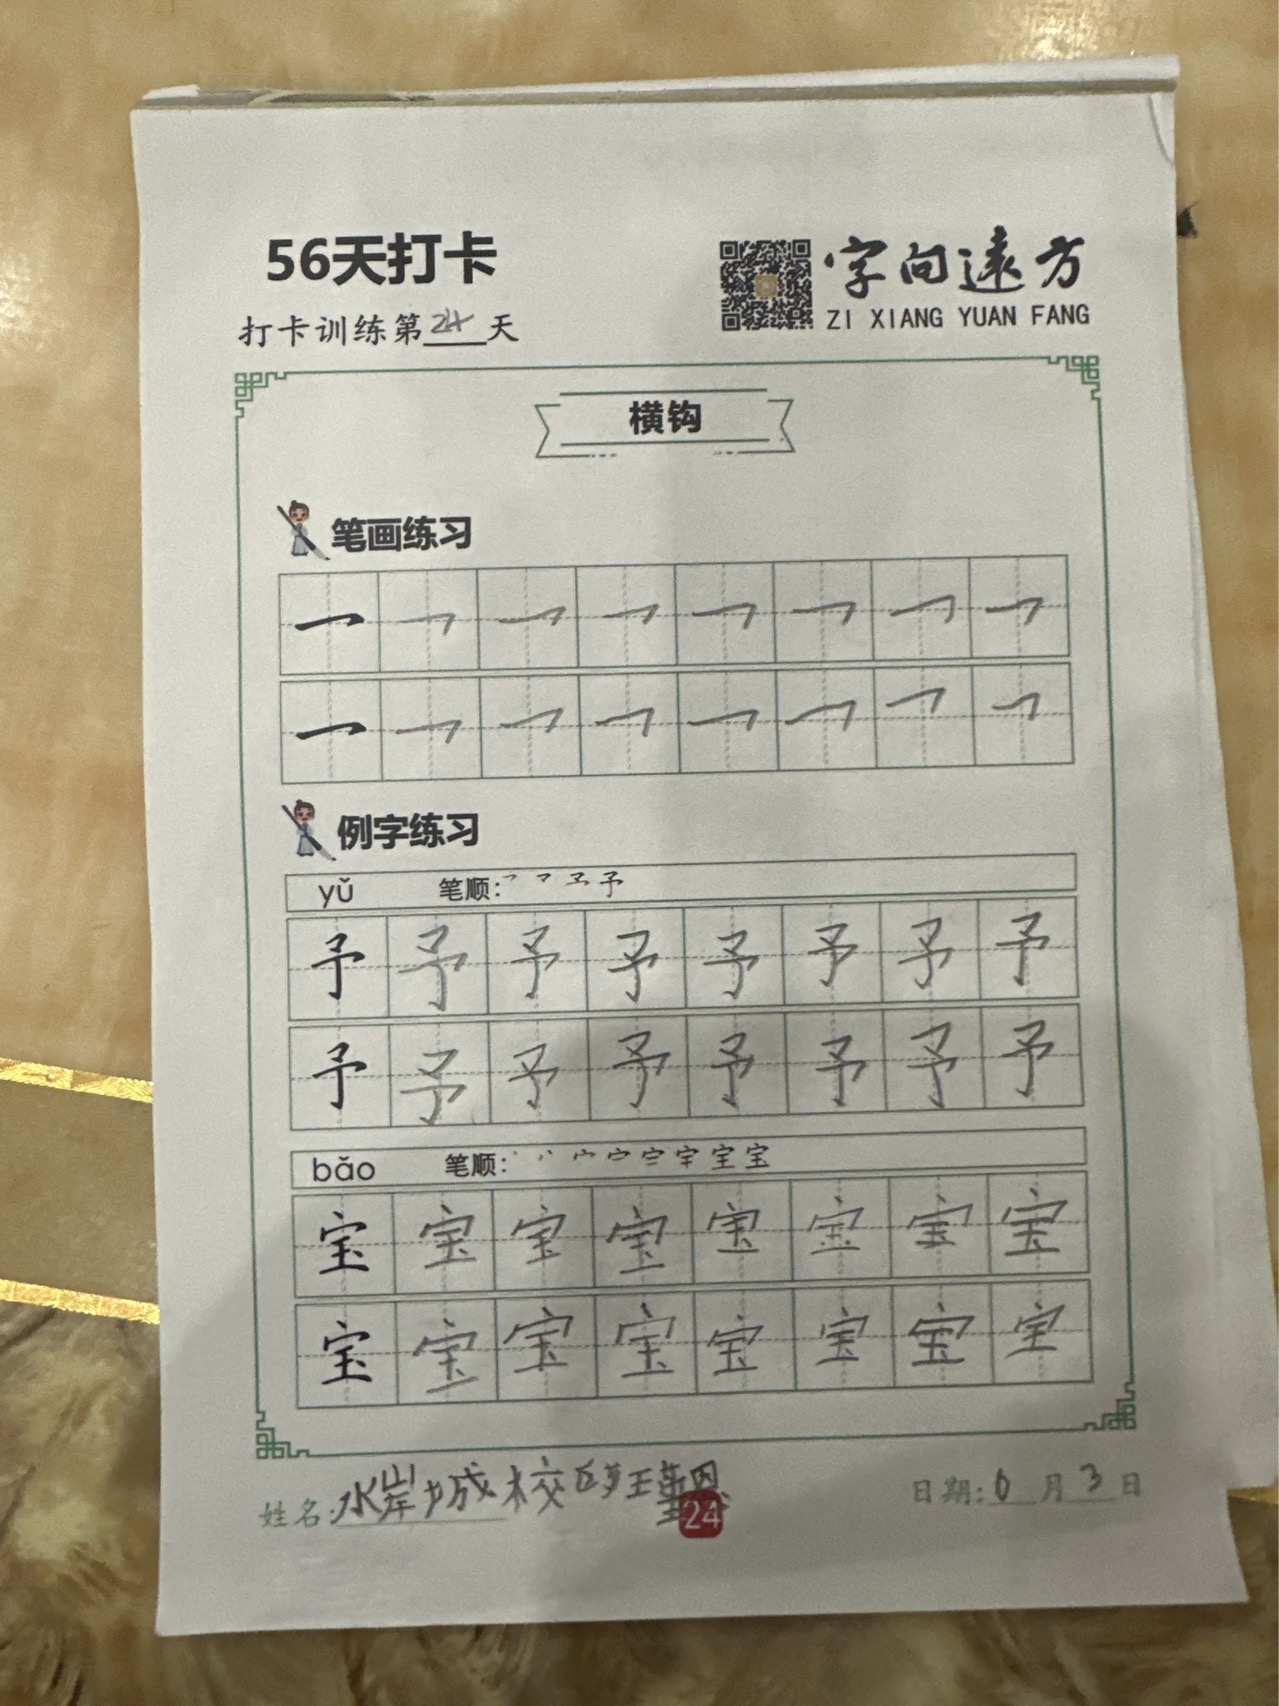 56天打卡
字向远方
打卡训练第24天
ZI XIANG YUAN FANG
横钩
笔画练习
㇖ ㇖ ㇖ ㇖ ㇖ ㇖ ㇖ ㇖
㇖ ㇖ ㇖ ㇖ ㇖ ㇖ ㇖ ㇖
例字练习
yǔ 笔顺:
予 予 予 予 予 予 予 予
予 予 予 予 予 予 予 予
bǎo 笔顺:
宝 宝 宝 宝 宝 宝 宝 宝
宝 宝 宝 宝 宝 宝 宝 宝
姓名:水岸城校区 王 恩
日期:6月3日
24